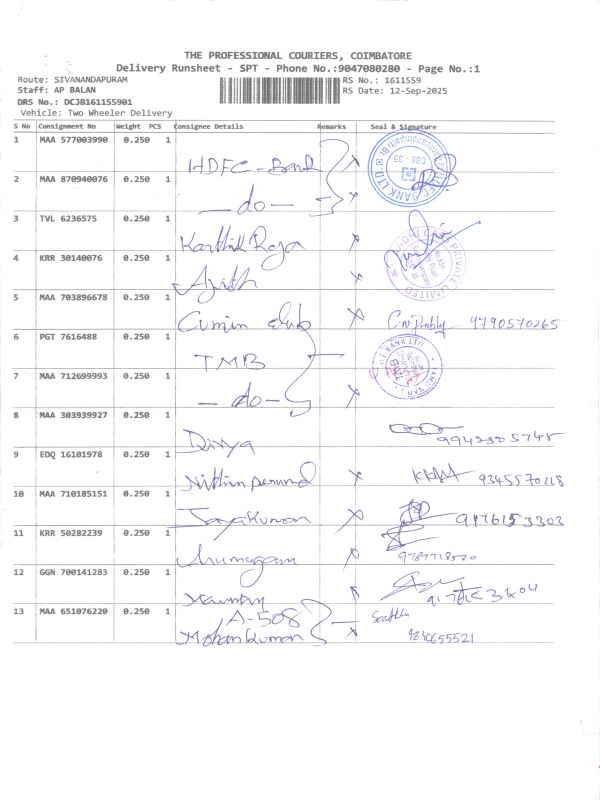 THE PROFESSIONAL COURIERS, COIMBATORE
Delivery Runsheet - SPT - Phone No.:9047080280 - Page No.:1
Route: SIVANANDAPURAM RS No.: 1611559
Staff: AP BALAN RS Date: 12-Sep-2025
DRS No.: DCJB161155901
Vehicle: Two Wheeler Delivery
S No Consignment No Weight PCS Consignee Details Remarks Seal & Signature
1 MAA 577003990 0.250 1 HDFC-Bank
2 MAA 870940076 0.250 1 -do-
3 TVL 6236575 0.250 1 Karthik Raja
4 KRR 30140076 0.250 1 Ajith
5 MAA 703896678 0.250 1 Cumin club 9790570265
6 PGT 7616488 0.250 1 TMB
7 MAA 712699993 0.250 1 -do-
8 MAA 303939927 0.250 1 Divya
9 EDQ 16101978 0.250 1 9345570218
10 MAA 710185151 0.250 1 Jayakumar 9176153303
11 KRR 50282239 0.250 1 Arumugam 9789718520
12 GGN 700141283 0.250 1
A-508
13 MAA 651076220 0.250 1 Mohan Kumar 9840655521